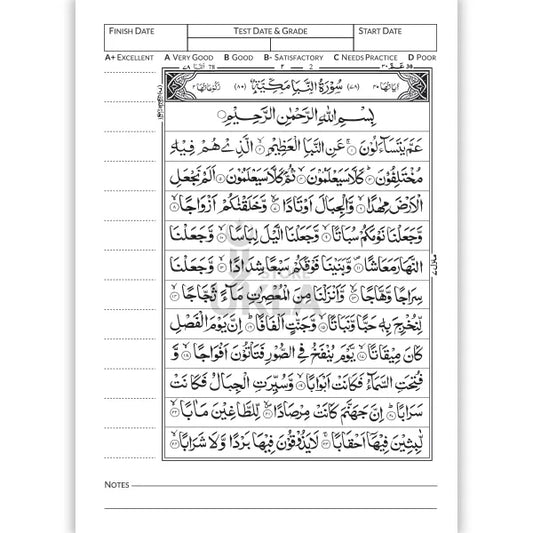 FINISH DATE TEST DATE & GRADE START DATE
A+ EXCELLENT A VERY GOOD B GOOD B- SATISFACTORY C NEEDS PRACTICE D POOR
النبا ٧٨ ٣ 2 عم ٣٠ 30
اٰيَاتُهَا ٤٠ (٧٨) سُوْرَةُ النَّبَاِ مَكِّيَّةٌ (٨٠) رُكُوْعَاتُهَا ٢
بِسْمِ اللّٰهِ الرَّحْمٰنِ الرَّحِيْمِ
عَمَّ يَتَسَآءَلُوْنَ ١ عَنِ النَّبَاِ الْعَظِيْمِ ٢ الَّذِيْ هُمْ فِيْهِ
مُخْتَلِفُوْنَ ٣ كَلَّا سَيَعْلَمُوْنَ ٤ ثُمَّ كَلَّا سَيَعْلَمُوْنَ ٥ اَلَمْ نَجْعَلِ
الْاَرْضَ مِهٰدًا ٦ وَّالْجِبَالَ اَوْتَادًا ٧ وَّخَلَقْنٰكُمْ اَزْوَاجًا ٨
وَّجَعَلْنَا نَوْمَكُمْ سُبَاتًا ٩ وَّجَعَلْنَا الَّيْلَ لِبَاسًا ١٠ وَّجَعَلْنَا
النَّهَارَ مَعَاشًا ١١ وَّبَنَيْنَا فَوْقَكُمْ سَبْعًا شِدَادًا ١٢ وَّجَعَلْنَا
سِرَاجًا وَّهَّاجًا ١٣ وَّاَنْزَلْنَا مِنَ الْمُعْصِرٰتِ مَآءً ثَجَّاجًا ١٤
لِّنُخْرِجَ بِهٖ حَبًّا وَّنَبَاتًا ١٥ وَّجَنّٰتٍ اَلْفَافًا ١٦ اِنَّ يَوْمَ الْفَصْلِ
كَانَ مِيْقَاتًا ١٧ يَّوْمَ يُنْفَخُ فِي الصُّوْرِ فَتَاْتُوْنَ اَفْوَاجًا ١٨ وَّ
فُتِحَتِ السَّمَآءُ فَكَانَتْ اَبْوَابًا ١٩ وَّسُيِّرَتِ الْجِبَالُ فَكَانَتْ
سَرَابًا ٢٠ اِنَّ جَهَنَّمَ كَانَتْ مِرْصَادًا ٢١ لِّلطَّاغِيْنَ مَاٰبًا ٢٢
لّٰبِثِيْنَ فِيْهَآ اَحْقَابًا ٢٣ لَا يَذُوْقُوْنَ فِيْهَا بَرْدًا وَّلَا شَرَابًا ٢٤
STORE
UKEA
NOTES